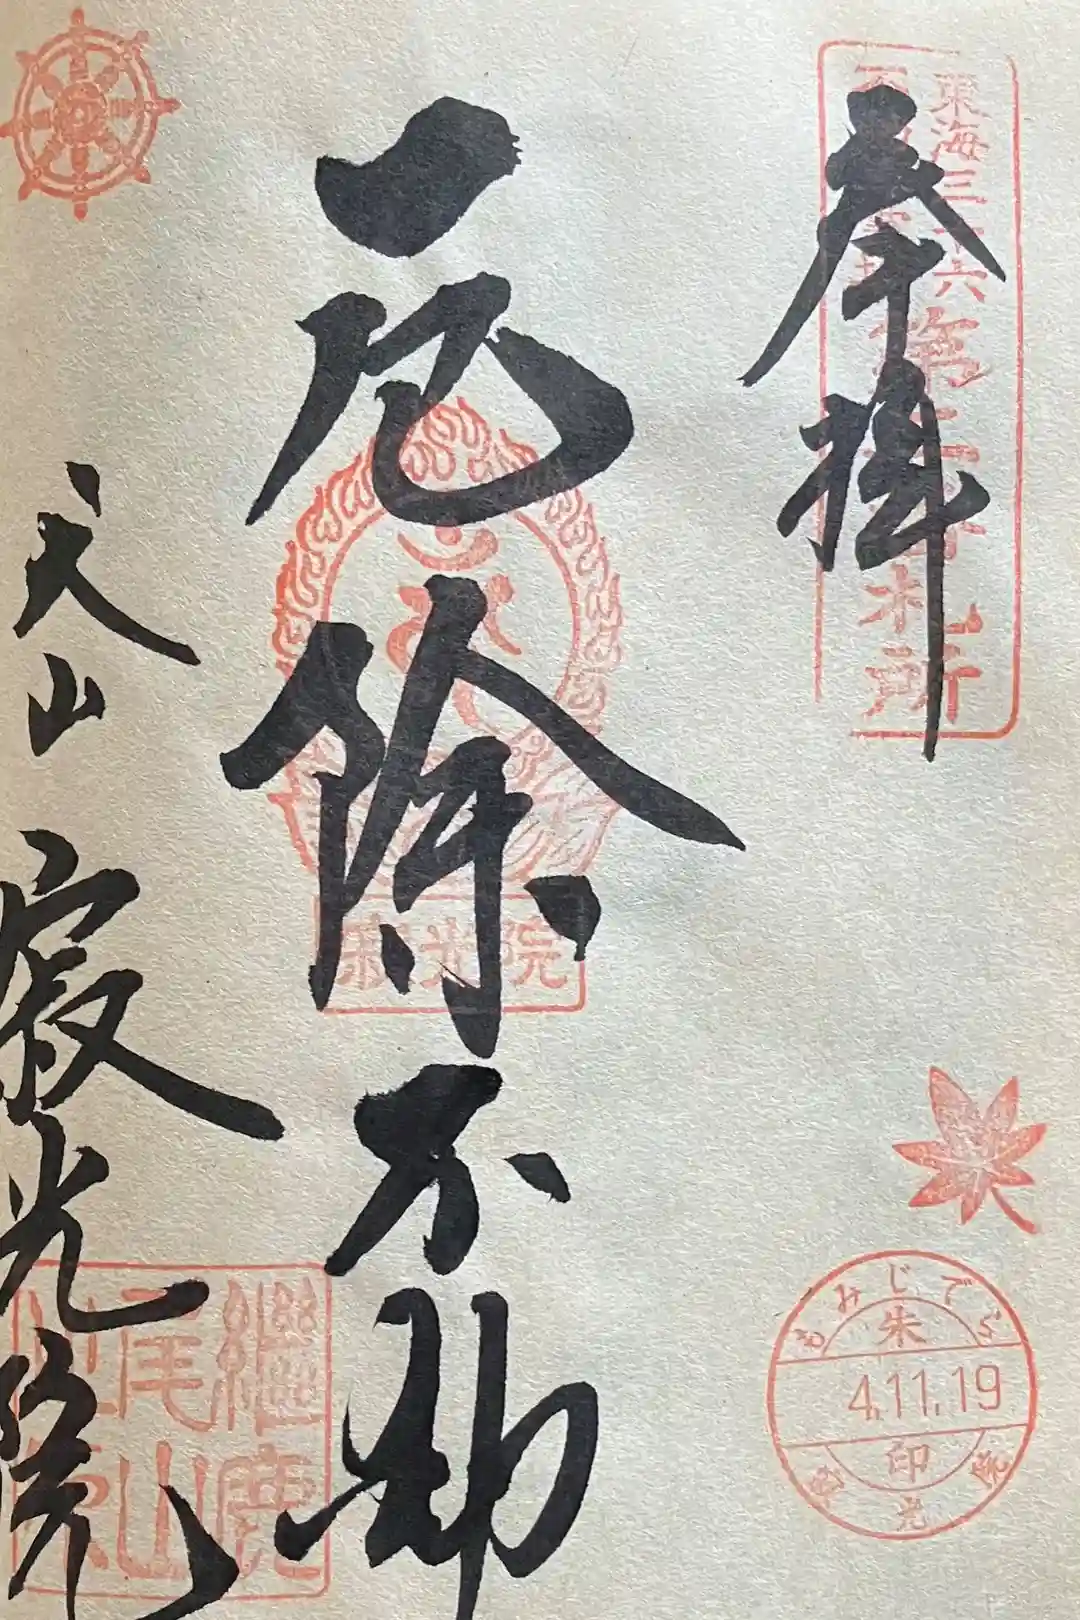 奉拝
東海三十六
不動尊霊場
第二番札所
厄除不動
寂光院
天山
寂光院
継鹿
尾山
もみじでら
朱
4.11.19
印
寂光院